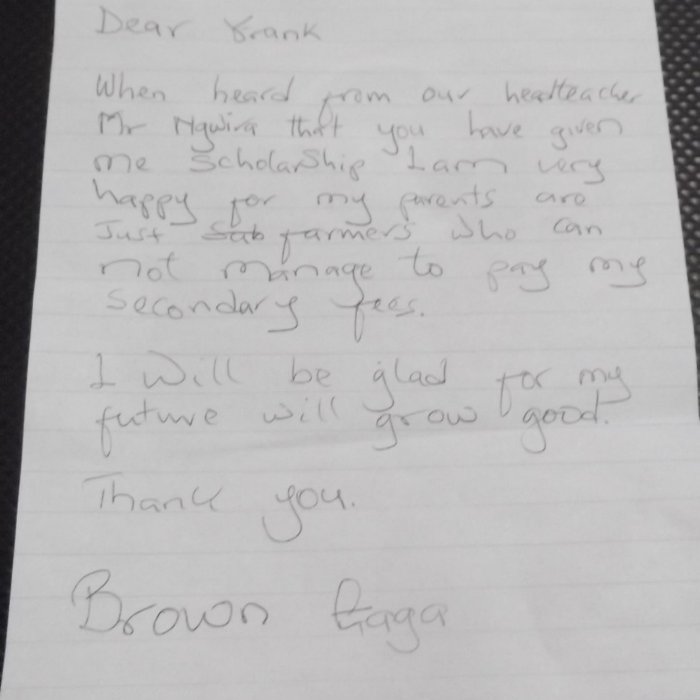 Dear Frank
When heard from our headteacher
Mr Ngwira that you have given
me Scholarship I am very
happy for my parents are
Just Sub farmers who can
not manage to pay my
Secondary fees.
I will be glad for my
future will grow good.
Thank you.
Brown Gaga